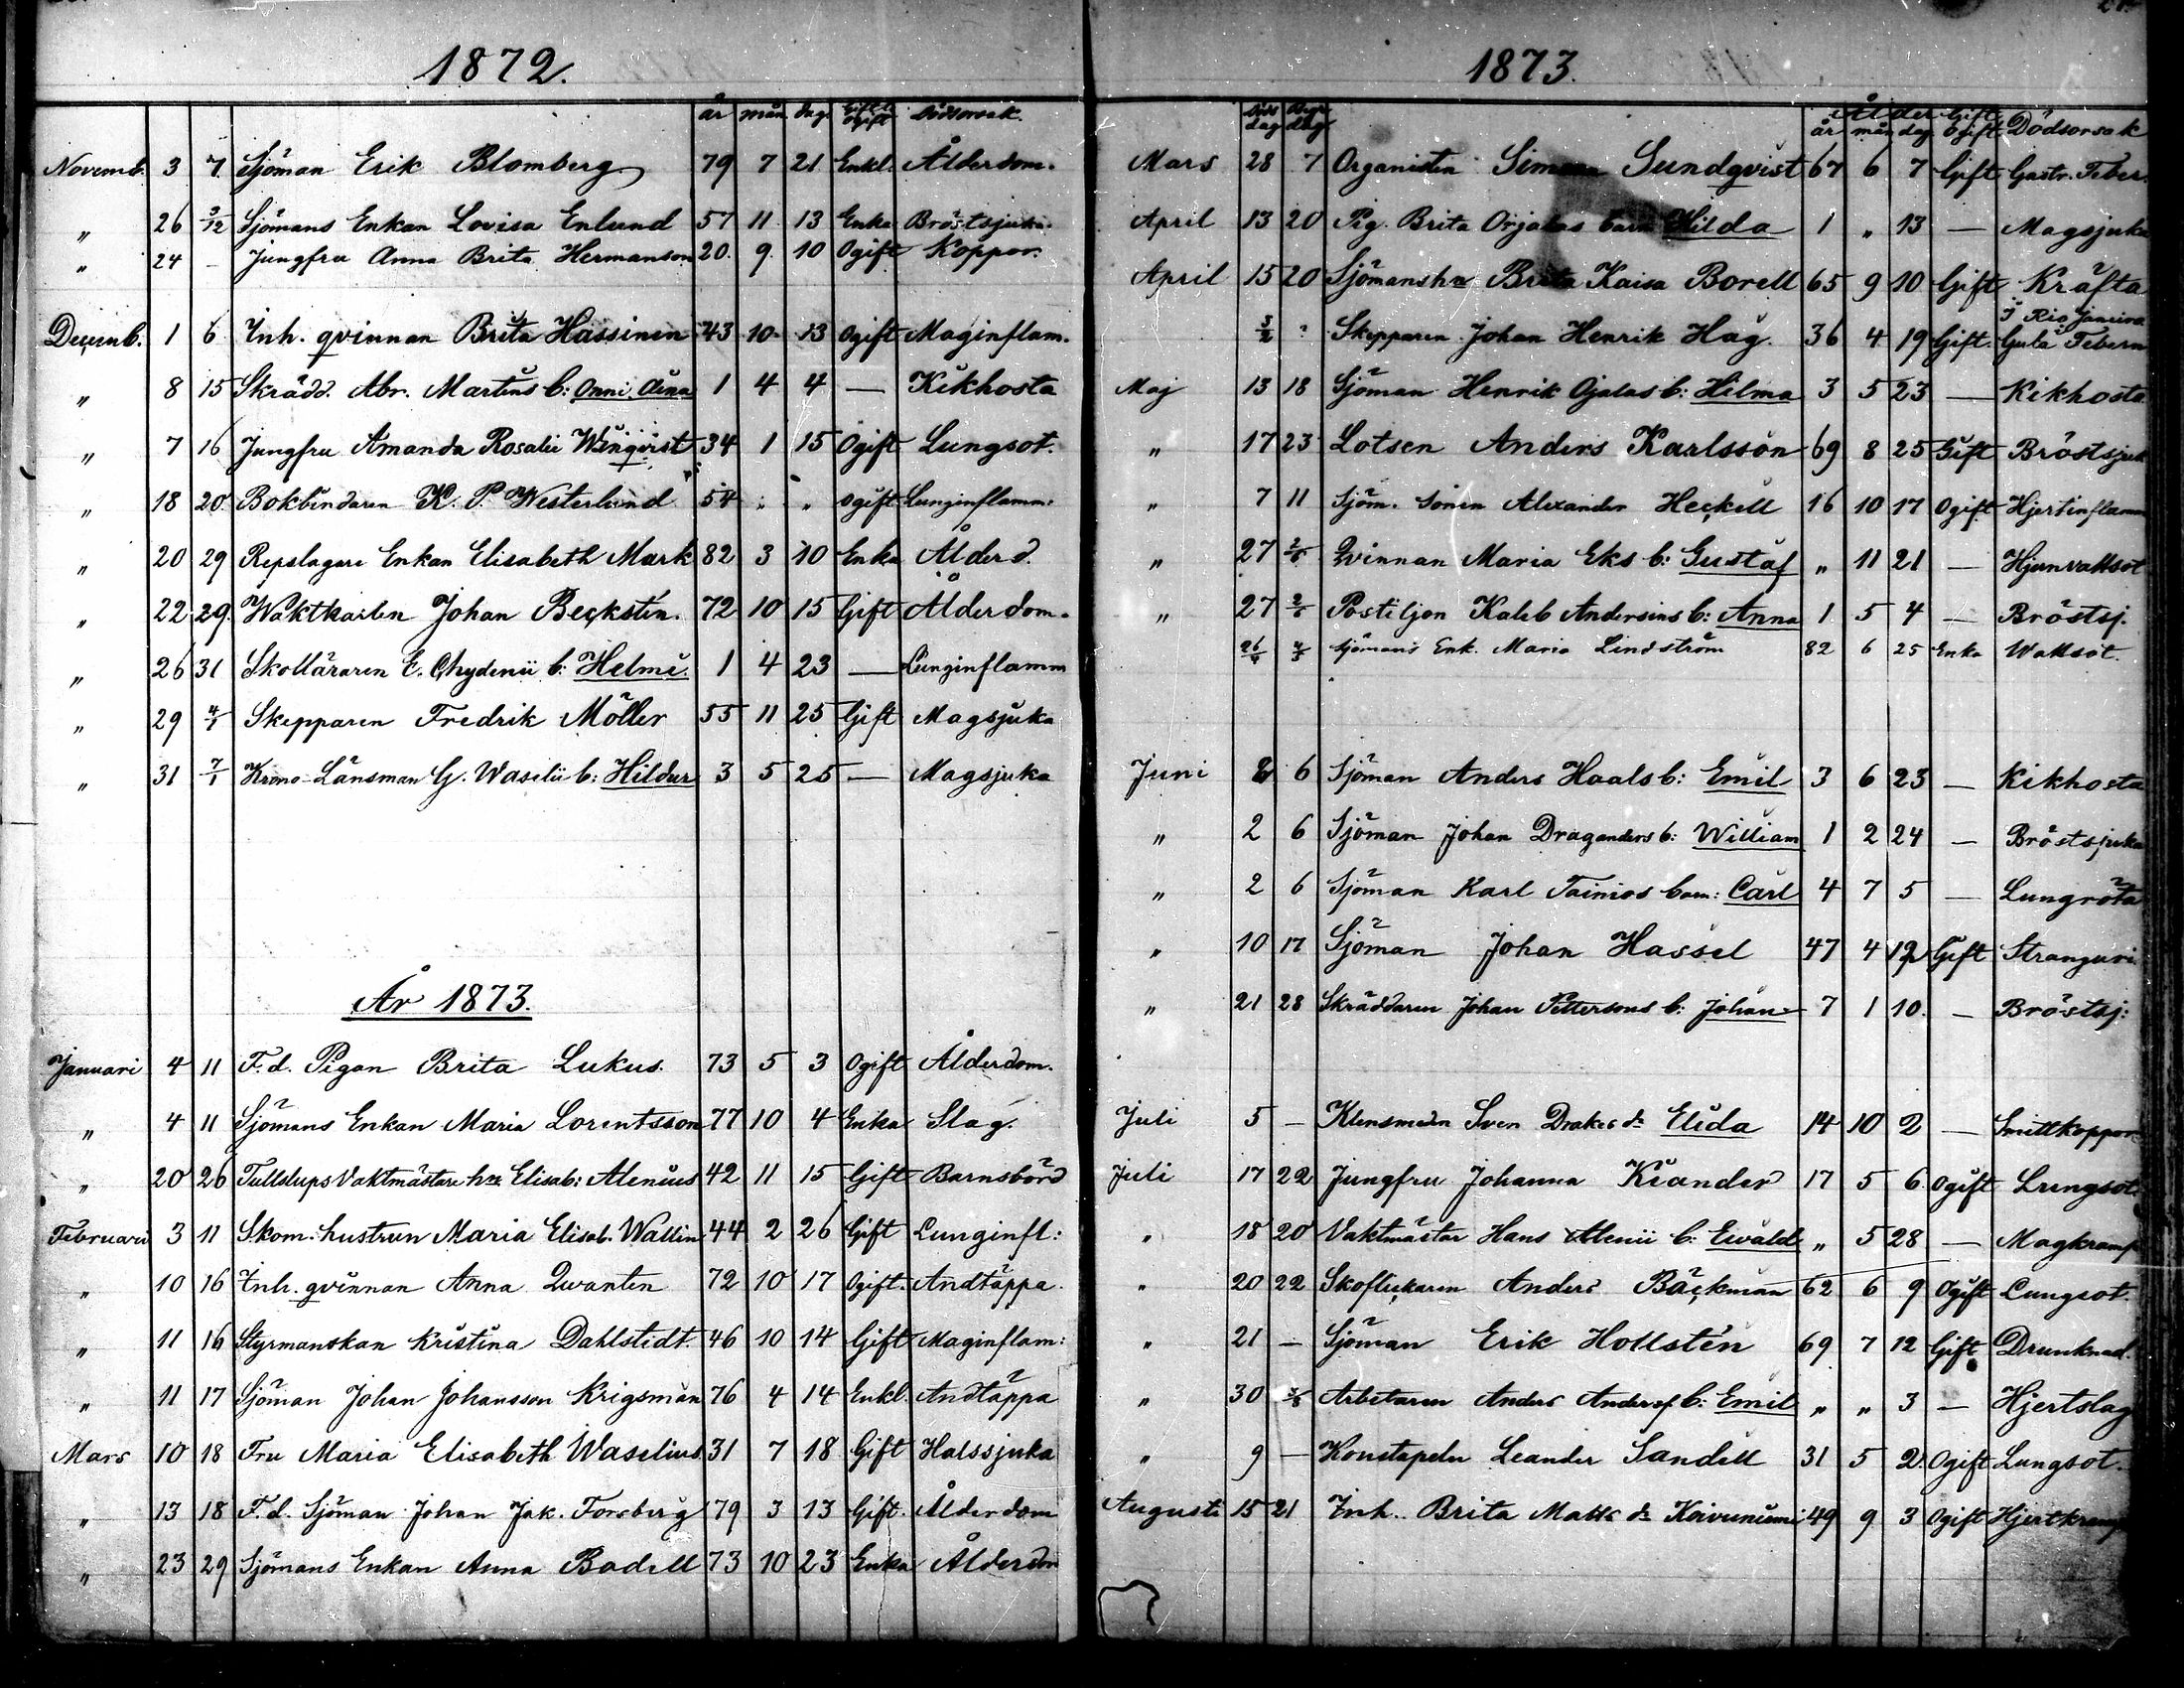 1872.
år mån. dag. Gift l. Ogift Dödsorsak.
Novemb. 3 7 Sjöman Erik Blomberg 79 7 21 Enkl. Ålderdom.
" 26 3/12 Sjömans Enkan Lovisa Enlund 57 11 13 Enka Bröstsjuka.
" 24 - Jungfru Anna Brita Hermanson 20. 9. 10 Ogift Koppor.
Decemb. 1 6 Inh. qvinnan Brita Hassinen 43 10 13 Ogift Maginflam.
" 8 15 Skrädd. Abr. Martins b: Onni Aina 1 4 4 — Kikhosta
" 7 16 Jungfru Amanda Rosalie Winqvist 34 1 15 Ogift Lungsot.
" 18 20 Bokbindaren K. P. Westerlund 54 " " ogift Lunginflamm:
" 20 29 Repslagare Enkan Elisabeth Mark 82 3 10 Enka Ålderd.
" 22 29. Waktkarlen Johan Beckstén. 72 10 15 Gift Ålderdom.
" 26 31 Skolläraren E. Chydenii b: Helmi. 1 4 23 — Lunginflamm
" 29 4/1 Skepparen Fredrik Möller 55 11 25 Gift Magsjuka
" 31 7/1 Krono-Länsman G. Waselii b: Hildur 3 5 25 — Magsjuka
År 1873.
Januari 4 11 F.d. Pigan Brita Lukus. 73 5 3 Ogift Ålderdom.
" 4 11 Sjömans Enkan Maria Lorentsson 77 10 4 Enka Slag.
" 20 26 Tullstups Vaktmästare hru Elisab: Alenius 42 11 15 Gift Barnsbörd
Februari 3 11 Skom. hustrun Maria Elisab. Wallin 44 2 26 Gift Lunginfl:
" 10 16 Inh. qvinnan Anna Qvanten 72 10 17 Ogift. Andtäppa.
" 11 16 Styrmanskan Kristina Dahlstedt. 46 10 14 Gift Maginflam:
" 11 17 Sjöman Johan Johansson Krigsman 76 4 14 Enkl. Andtäppa
Mars 10 18 Fru Maria Elisabeth Waselius 31 7 18 Gift Halssjuka
" 13 18 F.d. Sjöman Johan Jak. Forsberg 79 3 13 Gift. Ålderdom
" 23 29 Sjömans Enkan Anna Bodell 73 10 23 Enka Ålderdom
1873.
Ålder Gift
Död dag dag år mån dag Ogift Dödsorsak
Mars 28 7 Organisten Simon Sundqvist 67 6 7 Gift Gastr. Feber.
April 13 20 Pig. Brita Orjalas barn Hilda 1 " 13 — Magsjuka
April 15 20 Sjömans hru Brita Kaisa Borell 65 9 10 Gift Kräfta
I Rio Janeiro
3/2 ? Skepparen Johan Henrik Hag. 36 4 19 Gift. Gula Febern
Maj 13 18 Sjöman Henrik Ojalas b: Hilma 3 5 23 — Kikhosta
" 17 23 Lotsen Anders Karlsson 69 8 25 Gift Bröstsjuk
" 7 11 Sjöm. sonen Alexander Heckell 16 10 17 Ogift Hjertinflamm
" 27 2/6 Qvinnan Maria Eks b: Gustaf " 11 21 — Hjernvattsot
" 27 2/6 Postiljon Kaleb Andersins b: Anna 1 5 4 — Bröstsj.
26/4 4/5 Sjömans Enk. Maria Lindström 82 6 25 Enka Wattsot.
Juni 2 6 Sjöman Anders Haals b: Emil 3 6 23 — Kikhosta
" 2 6 Sjöman Johan Draganders b: William 1 2 24 — Bröstsjuka
" 2 6 Sjöman Karl Tainios barn: Carl 4 7 5 — Lungröta
" 10 17 Sjöman Johan Hassel 47 4 12 Gift Stranguri.
" 21 28 Skräddaren Johan Pettersons b: Johan 7 1 10. — Bröstsj:
Juli 5 — Klensmeden Sven Drakes dr Elida 14 10 2 — Smittkoppor
Juli 17 22 Jungfru Johanna Kiander 17 5 6. Ogift Lungsot
" 18 20 Vaktmästar Hans Alenii b: Ewald " 5 28 — Magkramp
" 20 22 Skoflickaren Anders Bäckman 62 6 9 Ogift Lungsot.
" 21 — Sjöman Erik Hollstén 69 7 12 Gift Drunknad.
" 30 3/8 Arbetaren Anders Andersf. b: Emil " " 3 — Hjertslag
" 9 — Konstapeln Leander Sandell 31 5 2 Ogift Lungsot.
Augusti 15 21 Inh. Brita Matts dr Koivuniemi 49 9 3 Ogift Hjertkramp